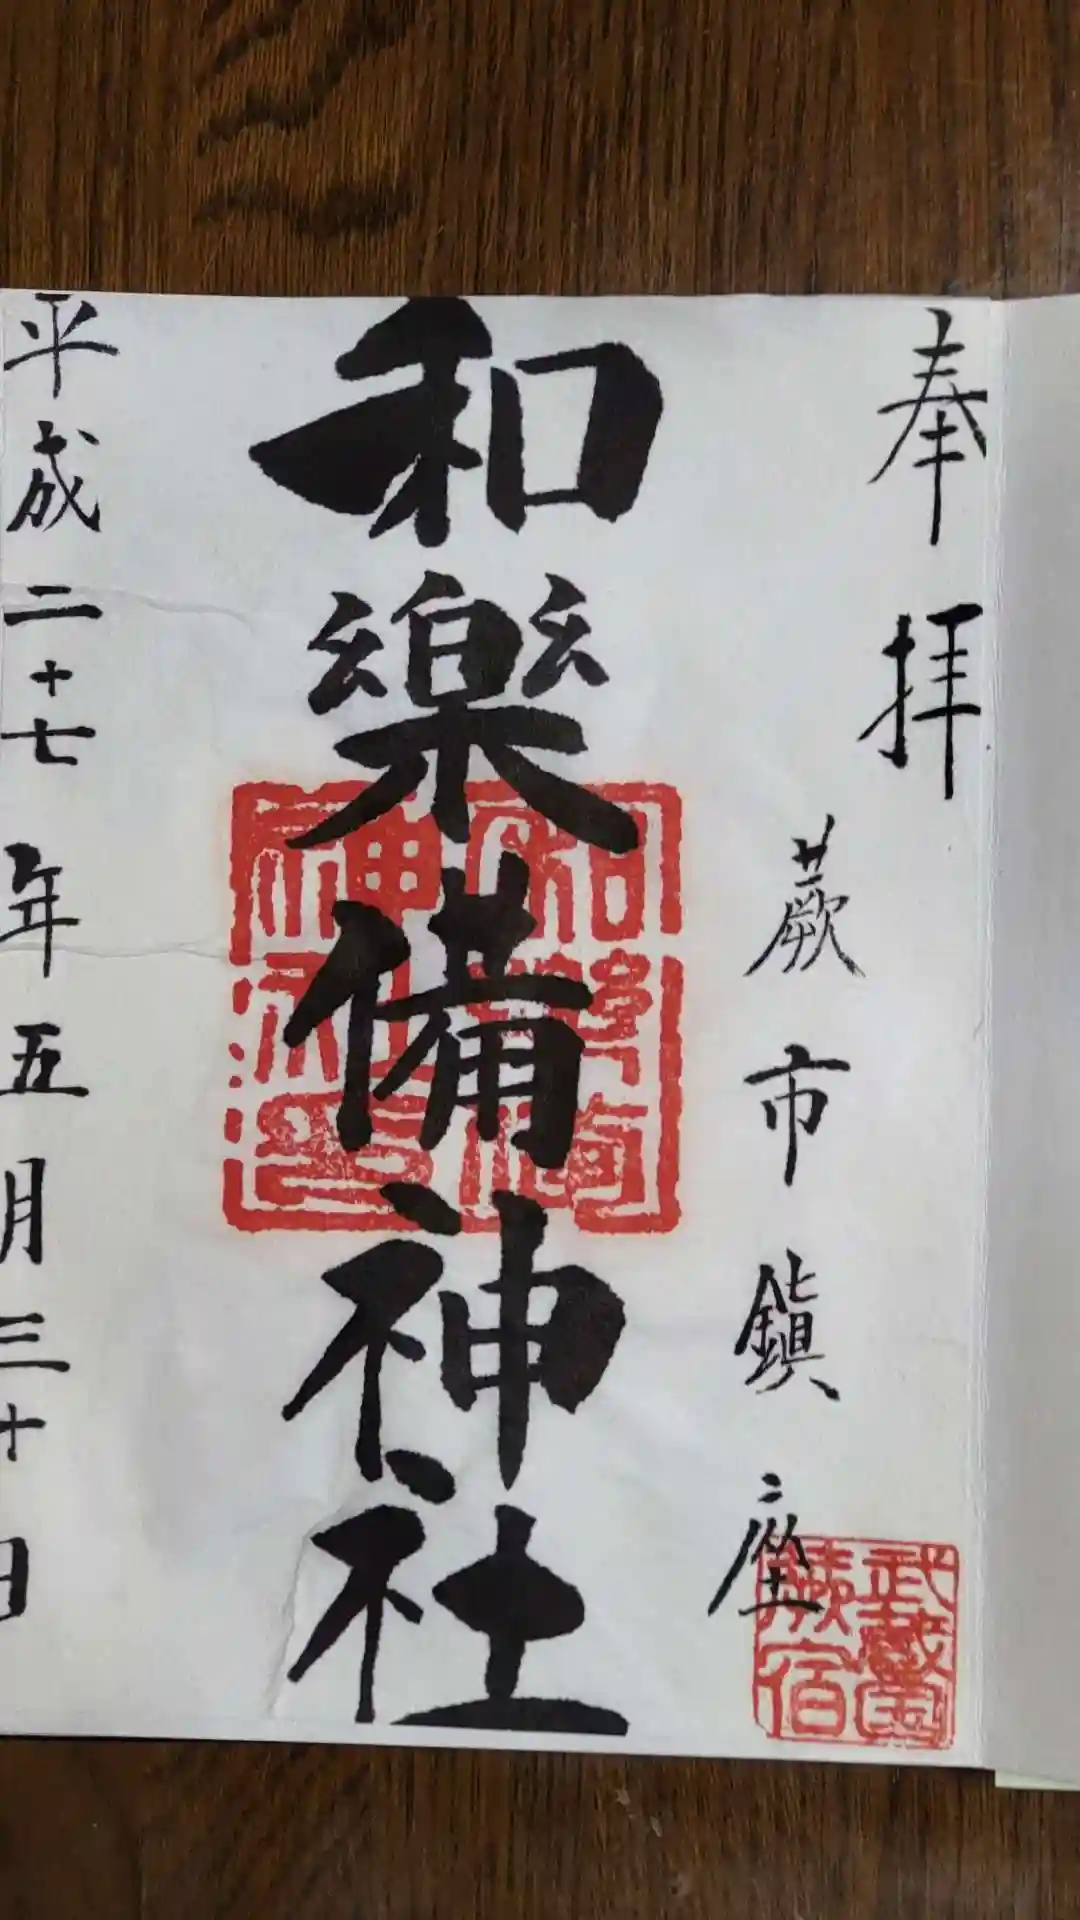 奉拝
蕨市鎮座
武蔵国
蕨宿
和樂備神社
平成二十七年五月三十日